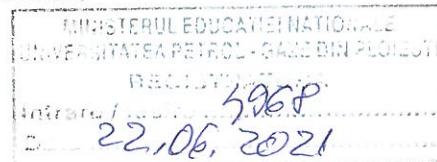 MINISTERUL EDUCAȚIEI NAȚIONALE
UNIVERSITATEA PETROL - GAZE DIN PLOIEȘTI
4968
22.06. 2021